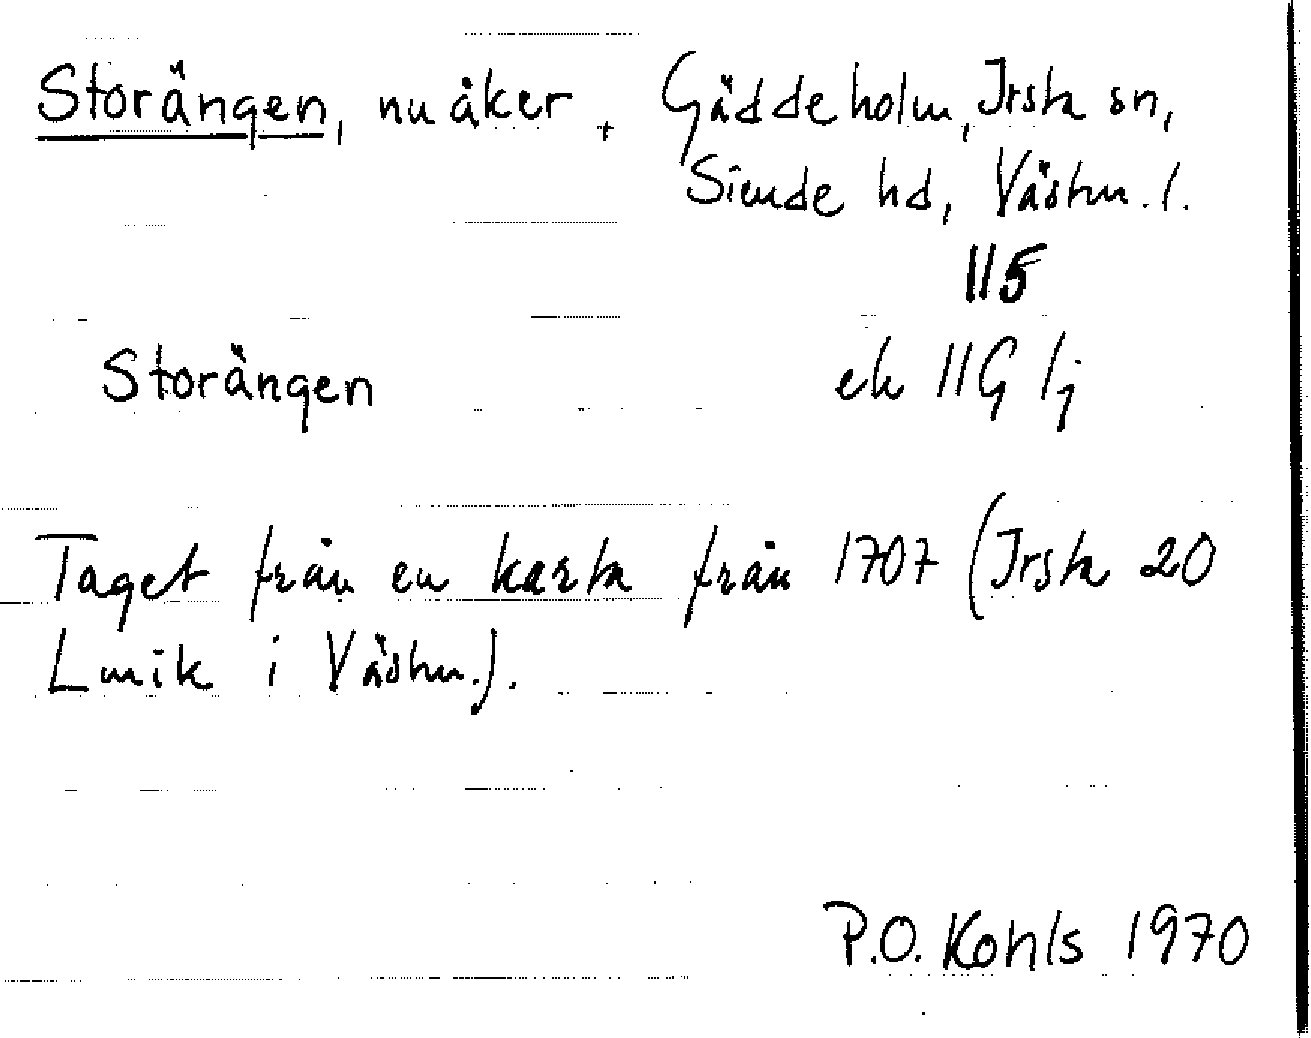 Storängen, nu åker + Gäddeholm, Irsta sn,
Siende hd, Västm. l.
115
Storängen ek 11G 1j
Taget från en karta från 1707 (Irsta 20
Lmfk i Västm.).
P.O. Kohls 1970